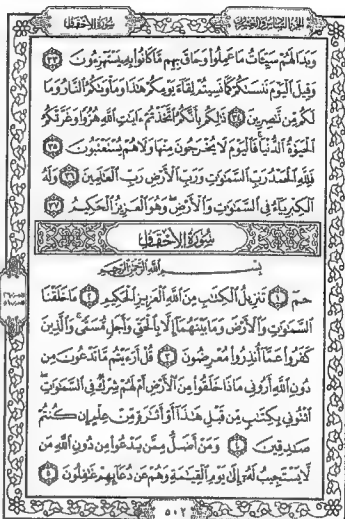 سُورَةُ الأَحْقَافِ الجُزْءُ السَّادِسُ وَالعِشْرُونَ
وَبَدَا لَهُمْ سَيِّـَٔاتُ مَا عَمِلُوا۟ وَحَاقَ بِهِم مَّا كَانُوا۟ بِهِۦ يَسْتَهْزِءُونَ ٣٣
وَقِيلَ ٱلْيَوْمَ نَنسَىٰكُمْ كَمَا نَسِيتُمْ لِقَآءَ يَوْمِكُمْ هَٰذَا وَمَأْوَىٰكُمُ ٱلنَّارُ وَمَا
لَكُم مِّن نَّٰصِرِينَ ٣٤ ذَٰلِكُم بِأَنَّكُمُ ٱتَّخَذْتُمْ ءَايَٰتِ ٱللَّهِ هُزُوًا وَغَرَّتْكُمُ
ٱلْحَيَوٰةُ ٱلدُّنْيَا فَٱلْيَوْمَ لَا يُخْرَجُونَ مِنْهَا وَلَا هُمْ يُسْتَعْتَبُونَ ٣٥
فَلِلَّهِ ٱلْحَمْدُ رَبِّ ٱلسَّمَٰوَٰتِ وَرَبِّ ٱلْأَرْضِ رَبِّ ٱلْعَٰلَمِينَ ٣٦ وَلَهُ
ٱلْكِبْرِيَآءُ فِى ٱلسَّمَٰوَٰتِ وَٱلْأَرْضِ وَهُوَ ٱلْعَزِيزُ ٱلْحَكِيمُ ٣٧
سُورَةُ الأَحْقَافِ
بِسْمِ ٱللَّهِ ٱلرَّحْمَٰنِ ٱلرَّحِيمِ
حمٓ ١ تَنزِيلُ ٱلْكِتَٰبِ مِنَ ٱللَّهِ ٱلْعَزِيزِ ٱلْحَكِيمِ ٢ مَا خَلَقْنَا
ٱلسَّمَٰوَٰتِ وَٱلْأَرْضَ وَمَا بَيْنَهُمَآ إِلَّا بِٱلْحَقِّ وَأَجَلٍ مُّسَمًّى وَٱلَّذِينَ
كَفَرُوا۟ عَمَّآ أُنذِرُوا۟ مُعْرِضُونَ ٣ قُلْ أَرَءَيْتُم مَّا تَدْعُونَ مِن
دُونِ ٱللَّهِ أَرُونِى مَاذَا خَلَقُوا۟ مِنَ ٱلْأَرْضِ أَمْ لَهُمْ شِرْكٌ فِى ٱلسَّمَٰوَٰتِ
ٱئْتُونِى بِكِتَٰبٍ مِّن قَبْلِ هَٰذَآ أَوْ أَثَٰرَةٍ مِّنْ عِلْمٍ إِن كُنتُمْ
صَٰدِقِينَ ٤ وَمَنْ أَضَلُّ مِمَّن يَدْعُوا۟ مِن دُونِ ٱللَّهِ مَن
لَّا يَسْتَجِيبُ لَهُۥٓ إِلَىٰ يَوْمِ ٱلْقِيَٰمَةِ وَهُمْ عَن دُعَآئِهِمْ غَٰفِلُونَ ٥
٥٠٢